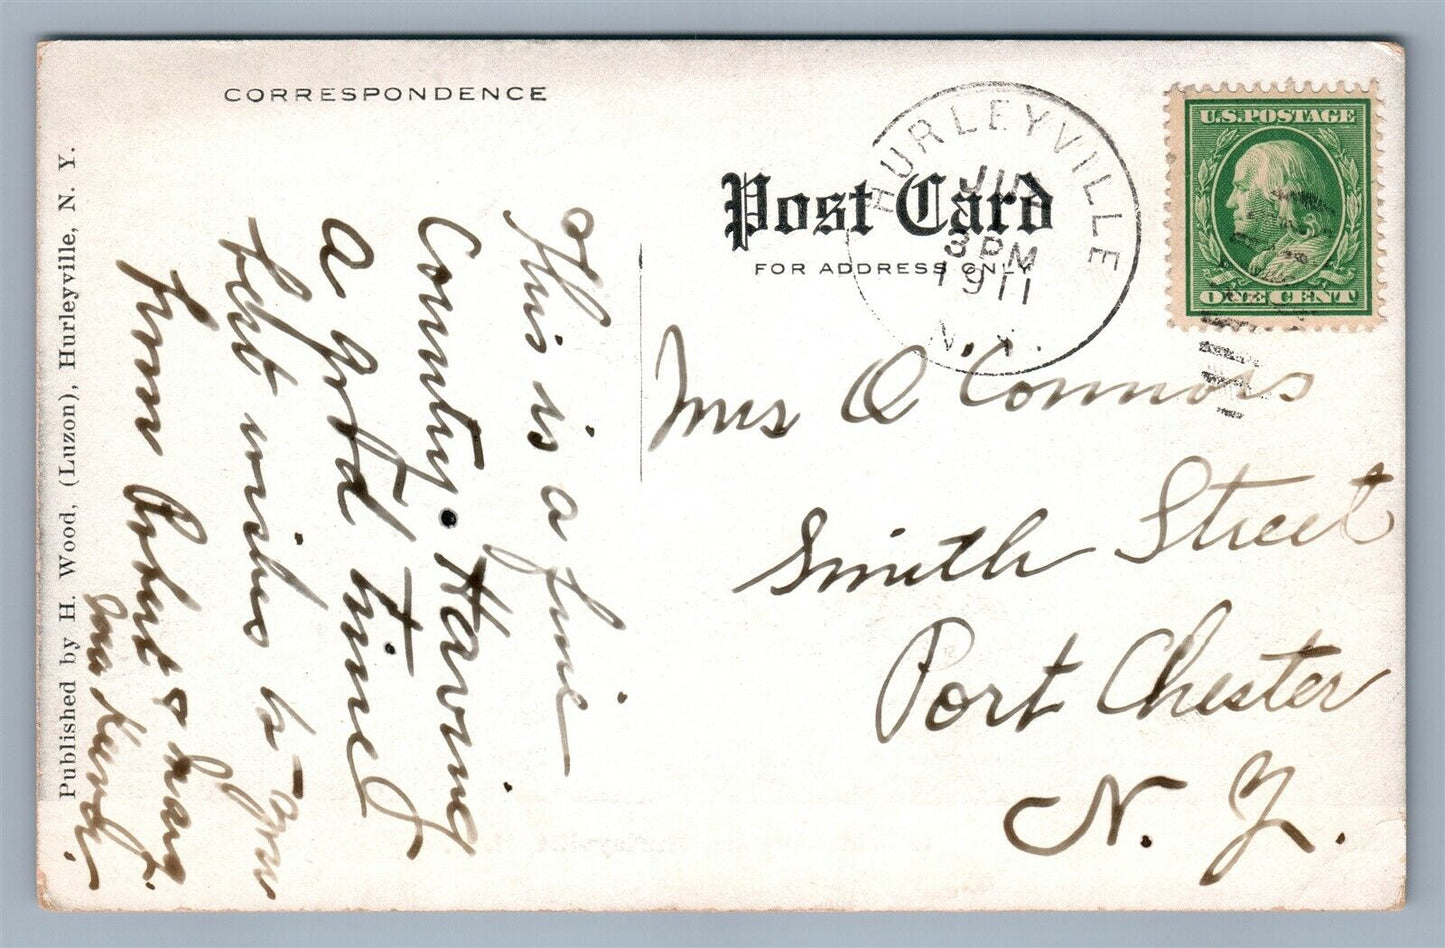 CORRESPONDENCE
Post Card
FOR ADDRESS ONLY
HURLEYVILLE
3 PM
1911
N.Y.
U.S. POSTAGE
ONE CENT
Published by H. Wood, (Luzon), Hurleyville, N. Y.
This is a fine
Country. Having
a good time
best wishes to you
from Robert &
and
Mrs O'Connors
Smith Street
Port Chester
N. Y.